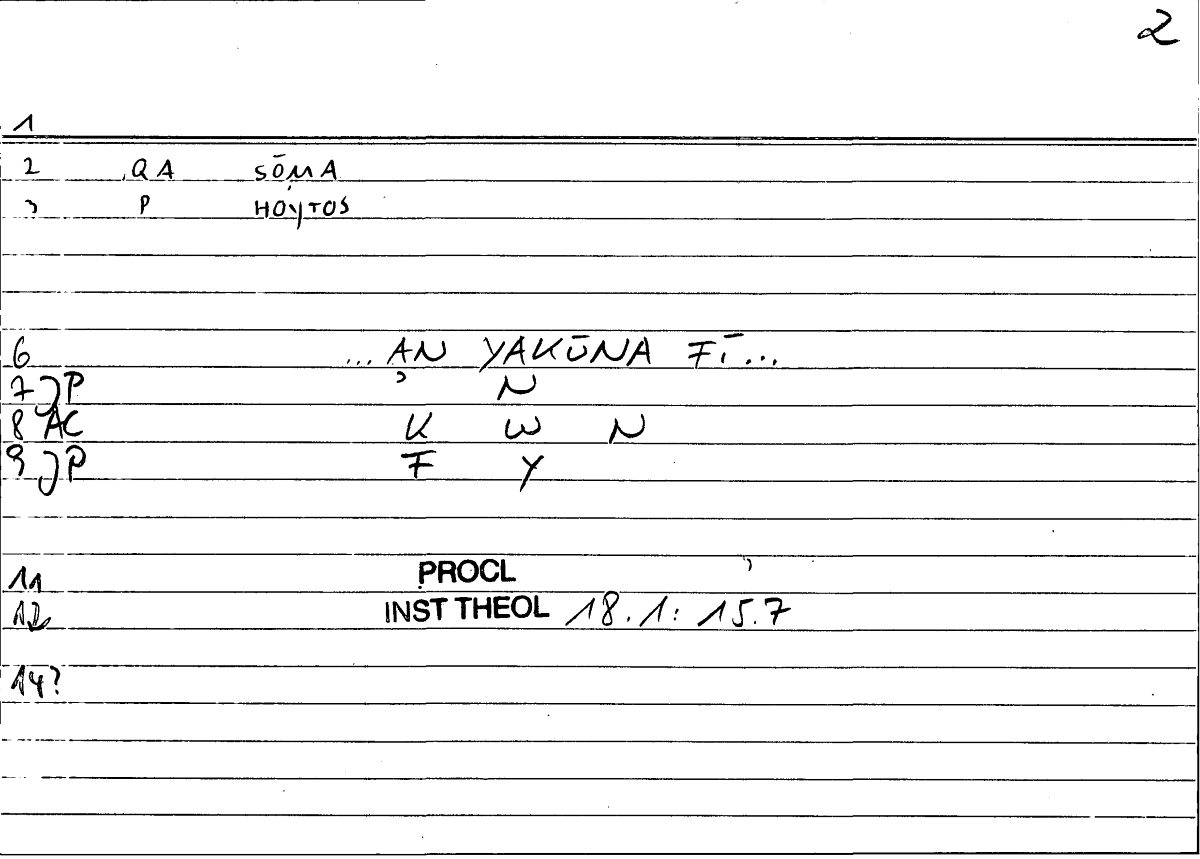 2
1
2 QA SŌMA
3 P HOYTOS
6 ... AN YAKŪNA FĪ...
7 JP ʾ N
8 AC K W N
9 JP F Y
11 PROCL
12 INST THEOL 18.1: 15.7
14?